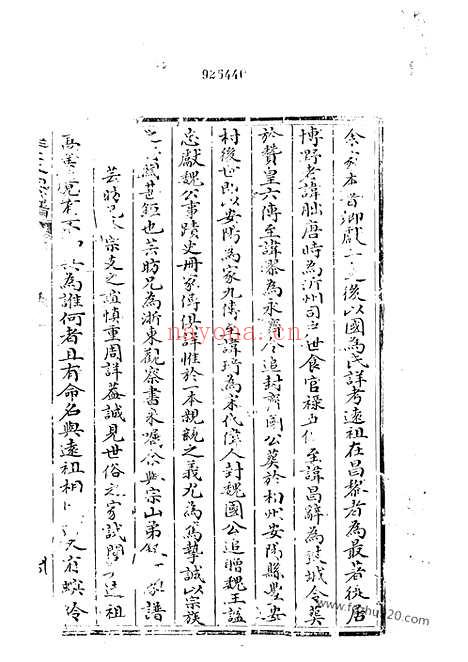 925440
余家本晉卿獻子之後以國為氏詳考遠祖在昌黎者為最著徙居
博野者諱朏唐時為沂州司戶世食官祿五傳至諱昌辭為鼓城令葬
於贊皇六傳至諱璆為永濟令追封齊國公葬於相州安陽縣豐安
村後世即以安陽為家九傳諱琦為宋代偉人封魏國公追贈魏王謚
忠獻魏公事蹟史冊家傳俱詳惟於一本親親之義尤為篤摯誠以宗族
之 甚鉅也芸昉兄為浙東觀察書來囑 與宗山弟 家譜
芸昉兄 宗支之誼慎重周詳益誠見世俗之家試問 遠祖
高善 竟有不 其為誰何者且有命名與遠祖相 又有螟蛉
nayona.cn
f-e.fozhu920.com